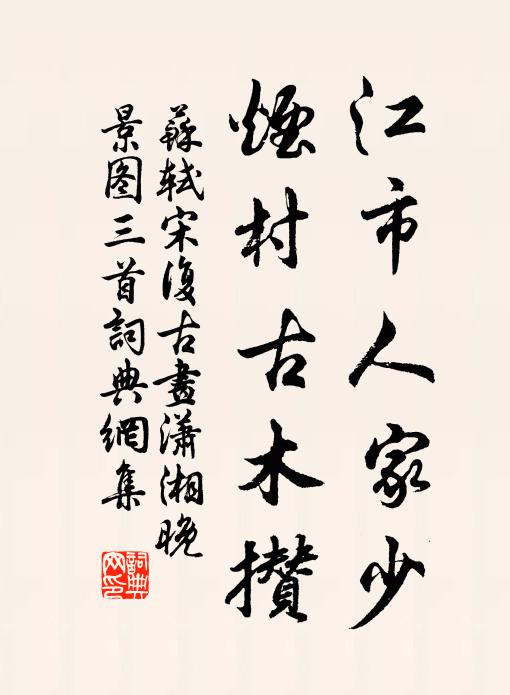 江市人家少
煙村古木攅
蘇軾宋復古畫瀟湘晚
景图三首詞典網集
詞典网印